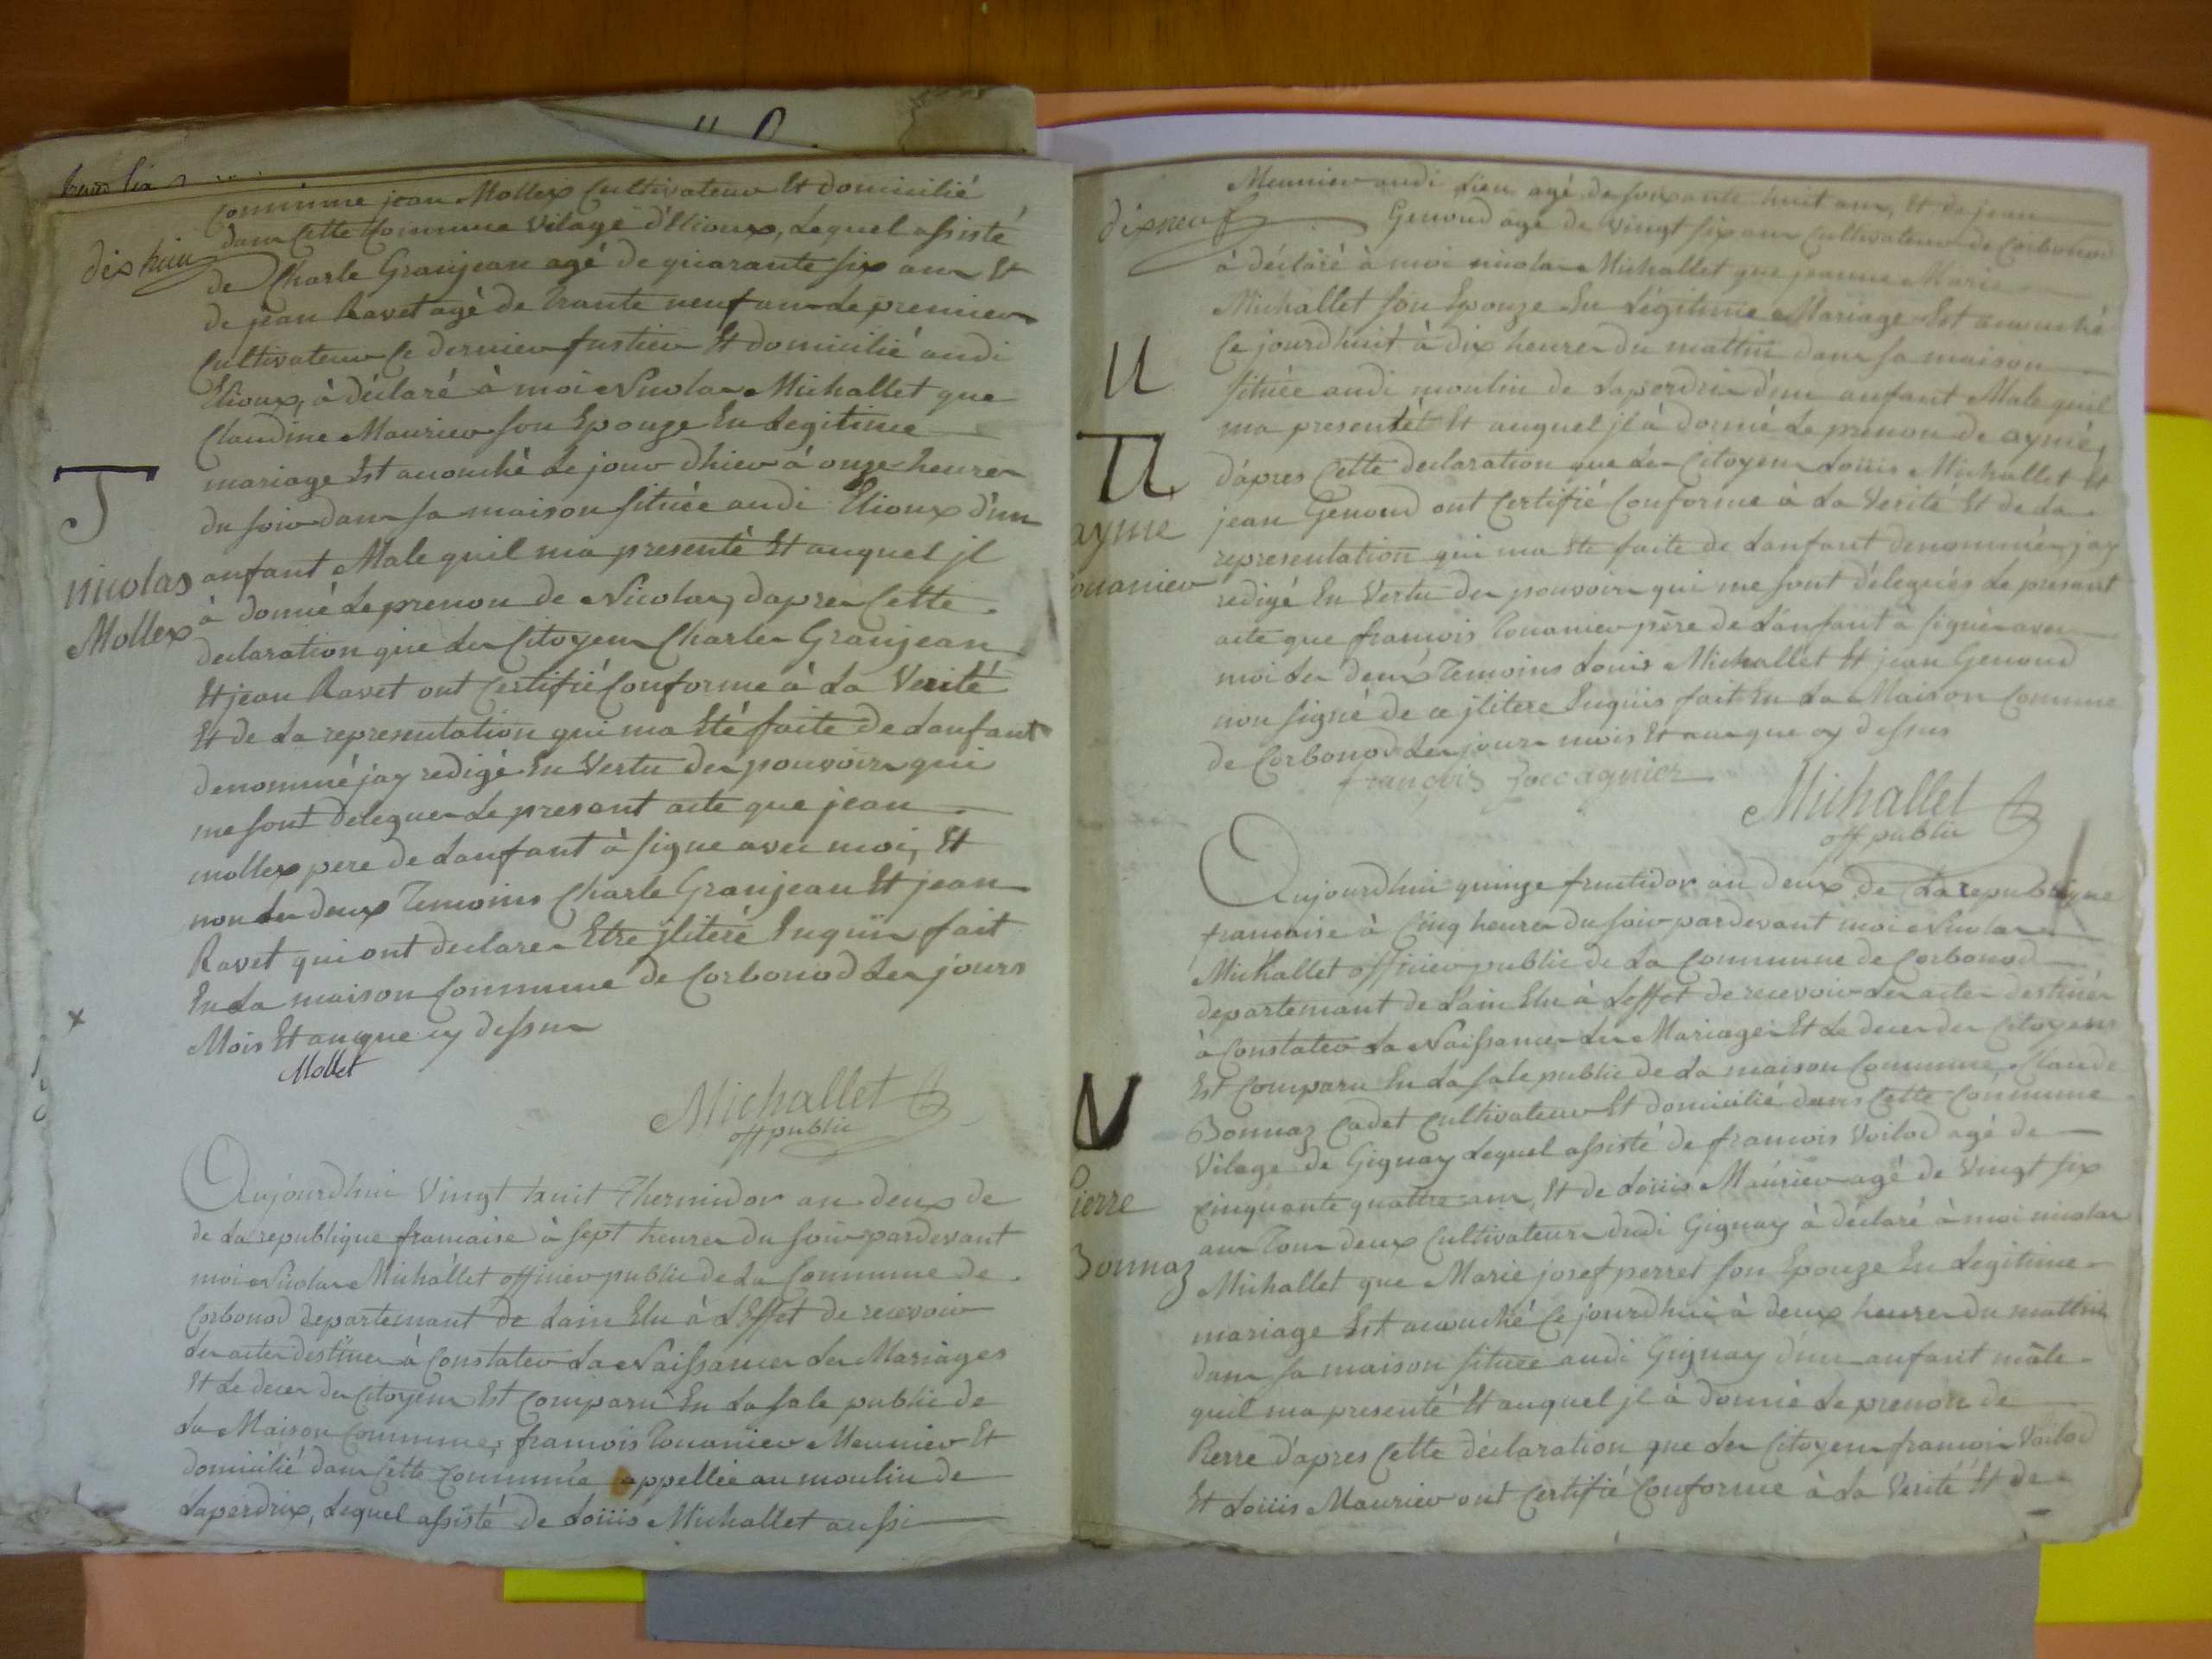 dix huit
commune jean Mollex Cultivateur Et domicilié
dans Cette Commune Vilage d'Elioux, Lequel assisté
de Charle Granjean agé de quarante six ans Et
de jean Ravet agé de trante neuf ans Le premier
Cultivateur Le dernier fustier Et domicilié audi
Elioux, à déclaré à moi Nicolas Michallet que
Claudine Maurier son Epouze En Legitime
mariage Est acouché Le jour dhier à onze heures
du soir dans sa maison située audi Elioux d'un
anfant Male quil ma presenté Et auquel jl
à donné Le prenon de Nicolas, dapres Cette
declaration que Les Citoyens Charles Granjean
Et jean Ravet ont Certifié Conforme à La Verité
Et de La representation qui ma Eté faite de Lanfant
denommé jay redigé En Vertu des pouvoirs qui
me sont delegues Le presant acte que jean
mollex pere de Lanfant à signe avec moi, Et
non Les deux Temoins Charle Granjean Et jean
Ravet qui ont declares Etre jliteré Enquis fait
En La maison Commune de Corbonod Les jours
Mois Et an que cy dessus
nicolas
Mollex
Mollet
Michallet
off public
Aujourdhui Vingt huit Thermidor an deux de
de La republique francaise à sept heures du soir pardevant
moi Nicolas Michallet officier public de La Commune de
Corbonod departemant de Lain Elu à L'Effet de recevoir
Les actes destinés à Constater La Naissances Les Mariages
Et Le deces des Citoyens Est Comparu En La sale public de
La Maison Commune, francois Touanier Meunier Et
domicilié dans Cette Commune appellée au moulin de
Laperdrix, Lequel assisté de Loüis Michallet aussi
dix neuf
Meunier audi Lieu agé de soixante huit ans, Et de jean
Genoud agé de Vingt six ans Cultivateur de Corbonod
à déclaré à moi nicolas Michallet que jeanne Marie
Michallet son Epouze En Légitime Mariage Est acouché
Ce jourdhuit à dix heures du mattin dans sa maison
située audi moulin de Laperdrix d'un anfant Male quil
ma presentét Et auquel jl à Donné Le prenon de aymé,
dápres Cette declaration que Les Citoyens Loüis Michallet Et
jean Genoud ont Certifié Conforme à La Verité Et de La
representation qui ma Eté faite de Lanfant denommé, jay
redigé En Vertu des pouvoirs qui me sont délegués Le presant
acte que francois Touanier père de L'anfant à signé avec
moi Les deux Temoins Louis Michallet Et jean Genoud
non signé de ce jlitere Enquis fait En La Maison Commune
de Corbonod Les jours mois Et an que cy dessus
ayme
ouanier
françois
Michallet
off public
Aujourdhui quinze fructidor an deux de La republique
francaise à Cinq heures du soir pardevant moi Nicolas
Michallet officier public de La Commune de Corbonod
departemant de Lain Elu à Leffet de recevoir Les actes destinés
à Constater La Naissances Les Mariages Et Le deces des Citoyens
Est Comparu En La sale public de La maison Commune, Claude
Bonnaz Cadet Cultivateur Et domicilié dans Cette Commune
Vilage de Gignay Lequel assisté de francois Voilod agé de
Cinquante quattre ans, Et de Loüis Maurier agé de Vingt six
ans Tous deux Cultivateurs dudi Gignay à déclaré à moi nicolas
Michallet que Marie josef perret son Epouze En Legitime
mariage Est acouché Ce jourdhui à deux heures du mattin
dans sa maison située audi Gignay d'un anfant mâle
quil ma presenté Et auquel jl à donné Le prenon de
Pierre d'apres Cette déclaration que Les Citoyens francois Voilod
Et Loüis Maurier ont Certifié Conforme à La Verité Et de
Pierre
Bonnaz